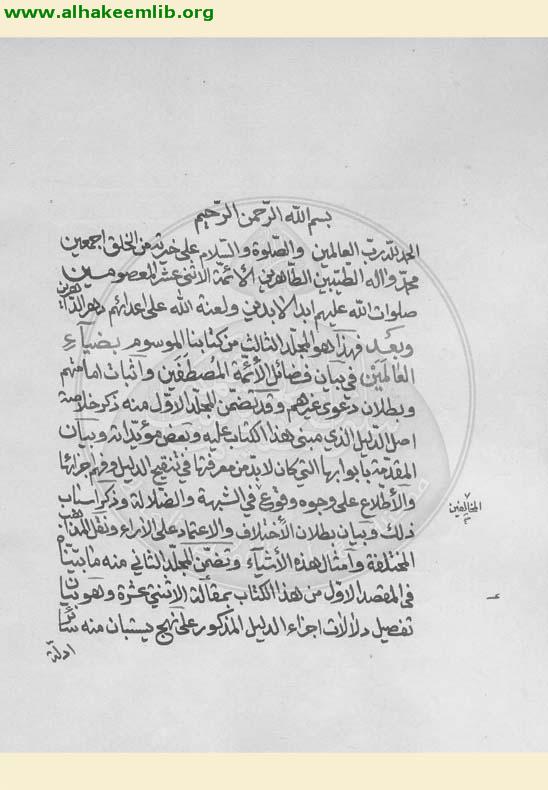 www.alhakeemlib.org
بسم الله الرّحمن الرّحيم
الحمد لله ربّ العالمين والصّلوة والسّلام على خير من الخلق اجمعين
محمّد واله الطّيّبين الطّاهرين الائمّة الاثنى عشر المعصومين
صلوات الله عليهم ابد الابدين ولعنة الله على اعدائهم دهر الداهرين
وبعد فهذا هو المجلّد الثالث من كتابنا الموسوم بضيآء
العالمين في بيان فضائل الأئمّة المصطفَين واثبات امامتهم
وبطلان دعوى غيرهم وقد تضمّن المجلد الاوّل منه ذكر خلاصة
اصل الدليل الذي مبنى هذا الكتاب عليه وبعض مؤيّداته وبيان
المقدّمة بابوابها التي كان لابدّ من معرفتها في تنقيح الدليل وفهم اجزائها
والأطلاع على وجوه وقوع في الشبهة والضلالة وذكر اسباب
المخالفين
ذلك وبيان بطلان الأختلاف والاعتماد على الأراء ونقل المذاهب
المختلفة وامثال هذه الأشيآء وتضمّن المجلّد الثاني منه ما بيّنّا
في المقصد الاوّل من هذا الكتاب بمقالاته الاثنتي عشرة وهو بيان
تفصيل دلالات اجزاء الدليل المذكور على نهج يستبان منه سائر
ادلّة